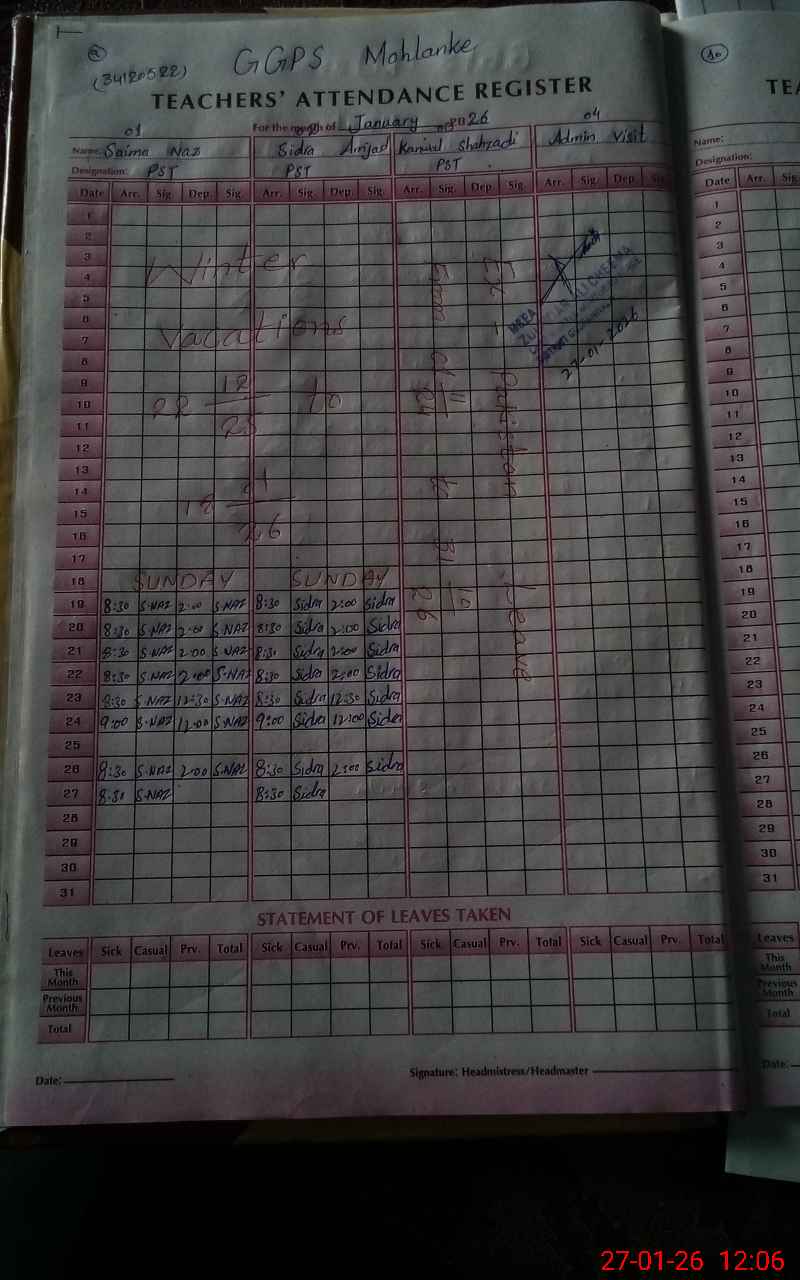 (34120522) GGPS Mohlanke
TEACHERS' ATTENDANCE REGISTER
For the month of January 2026
01 04
Name: Saima Naz Sidra Amjad Kanwal Shahzadi Admin Visit
Designation: PST PST PST
Date Arr. Sig. Dep. Sig. Arr. Sig. Dep. Sig. Arr. Sig. Dep. Sig. Arr. Sig. Dep. Sig.
1
2
3
4
5
6
7
8
9
10
11
12
13
14
15
16
17
Winter
Vacations
22 12/25 to
18 01/26
Ex - Pakistan Leave
From 01 11/24 to 31 10/26
ZULFIQAR ALI CHEEMA
27-01-2026
18 SUNDAY SUNDAY
19 8:30 S.NAZ 2:00 S.NAZ 8:30 Sidra 2:00 Sidra
20 8:30 S.NAZ 2:00 S.NAZ 8:30 Sidra 2:00 Sidra
21 8:30 S.NAZ 2:00 S.NAZ 8:30 Sidra 2:00 Sidra
22 8:30 S.NAZ 2:00 S.NAZ 8:30 Sidra 2:00 Sidra
23 8:30 S.NAZ 12:30 S.NAZ 8:30 Sidra 12:30 Sidra
24 9:00 S.NAZ 12:00 S.NAZ 9:00 Sidra 12:00 Sidra
25
26 8:30 S.NAZ 2:00 S.NAZ 8:30 Sidra 2:00 Sidra
27 8:30 S.NAZ 8:30 Sidra
28
29
30
31
STATEMENT OF LEAVES TAKEN
Leaves Sick Casual Prv. Total Sick Casual Prv. Total Sick Casual Prv. Total Sick Casual Prv. Total
This Month
Previous Month
Total
Date: Signature: Headmistress/Headmaster
TE
Name:
Designation:
Date Arr. Sig
1
2
3
4
5
6
7
8
9
10
11
12
13
14
15
16
17
18
19
20
21
22
23
24
25
26
27
28
29
30
31
Leaves
This Month
Previous Month
Total
Date:
27-01-26 12:06